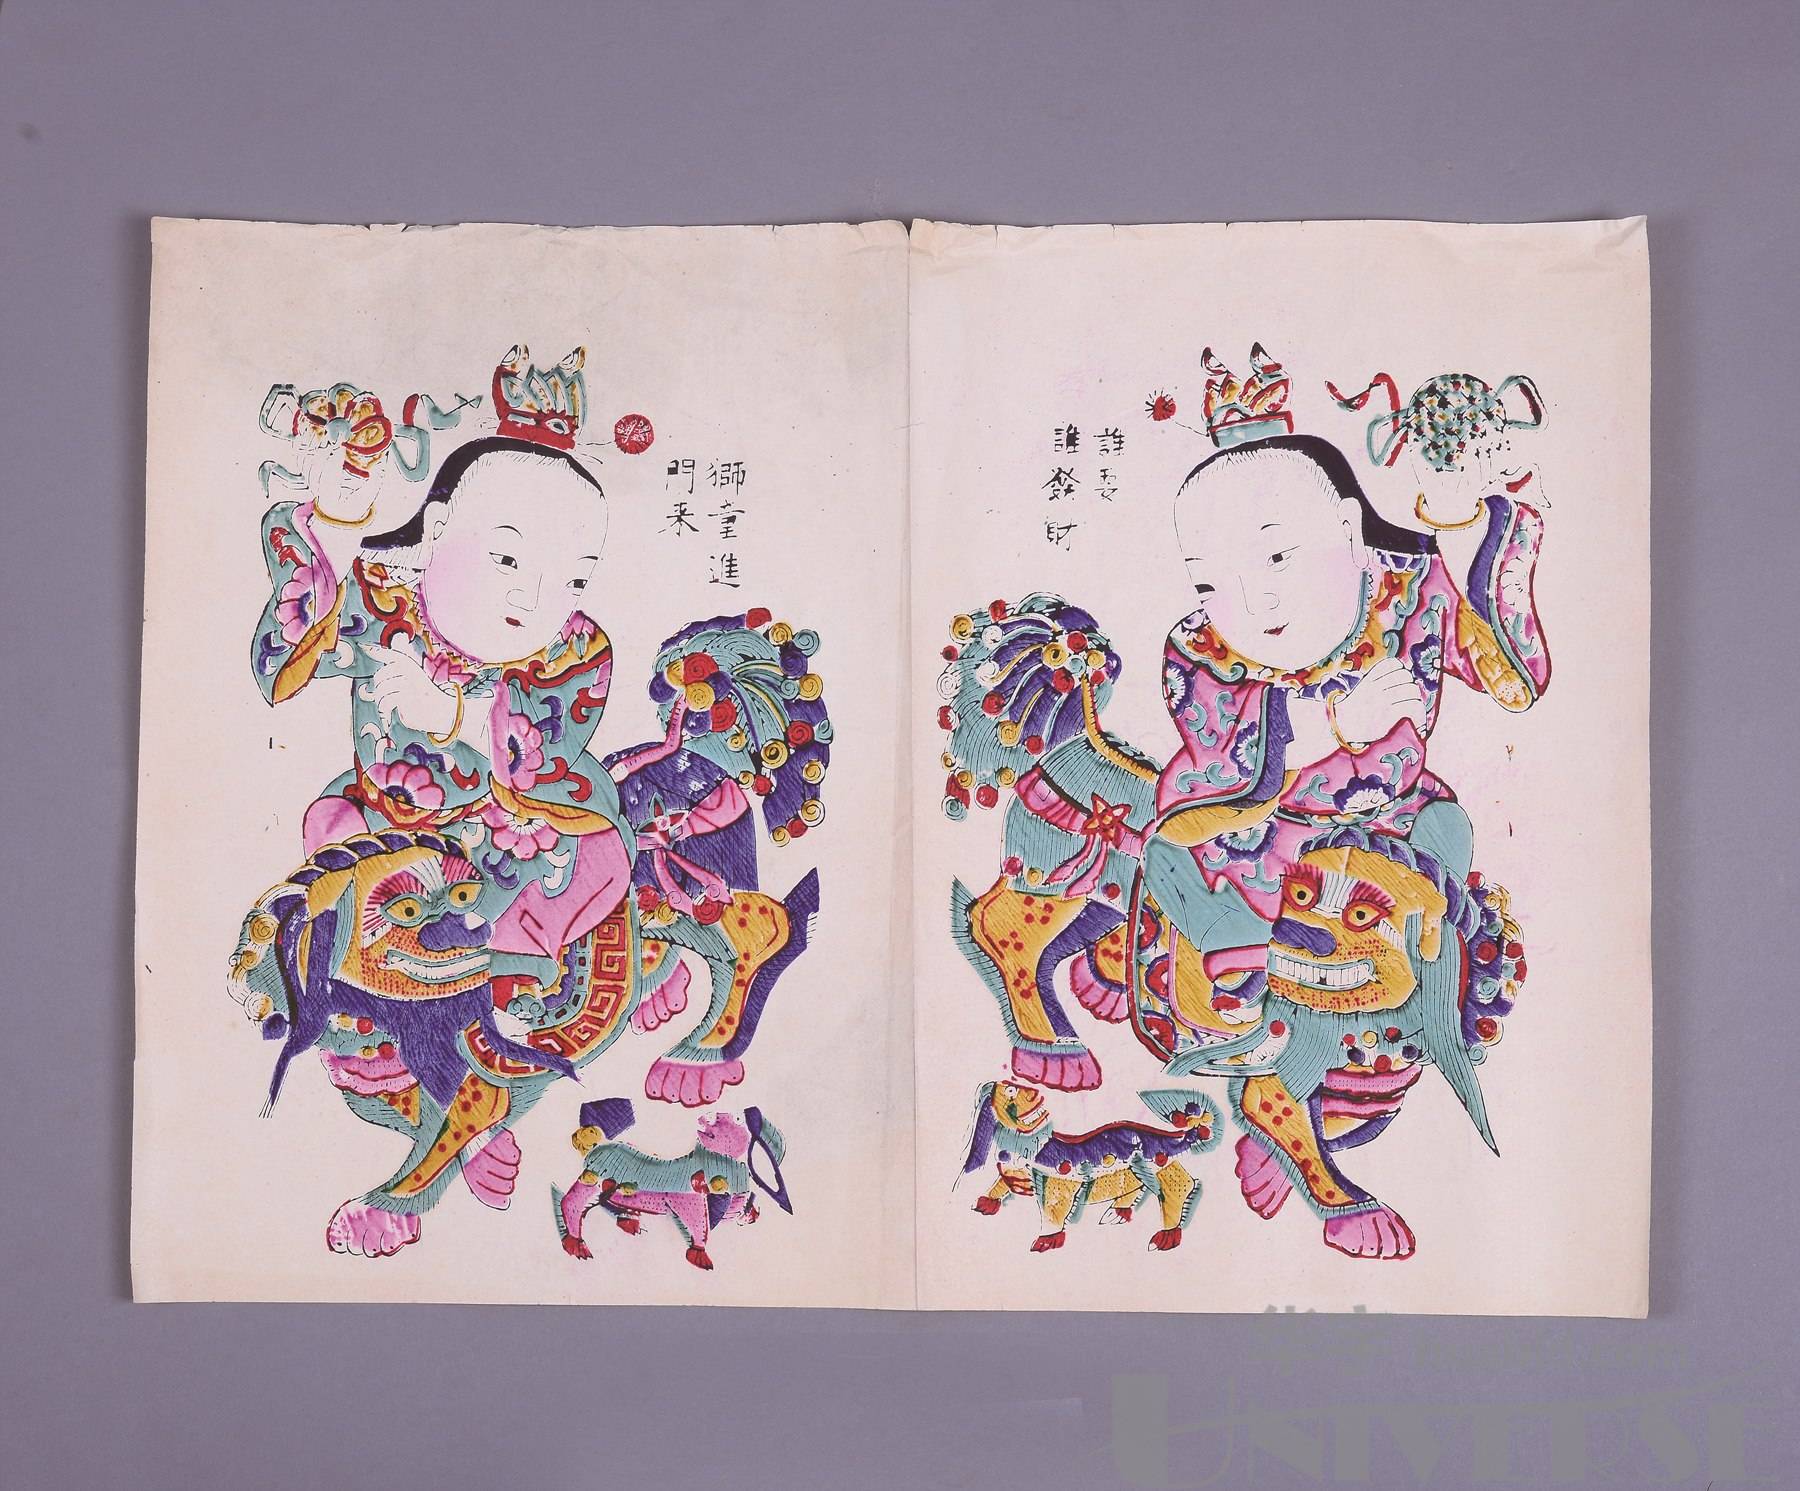 獅童進
門来
誰要
誰發財
UNIVERSE